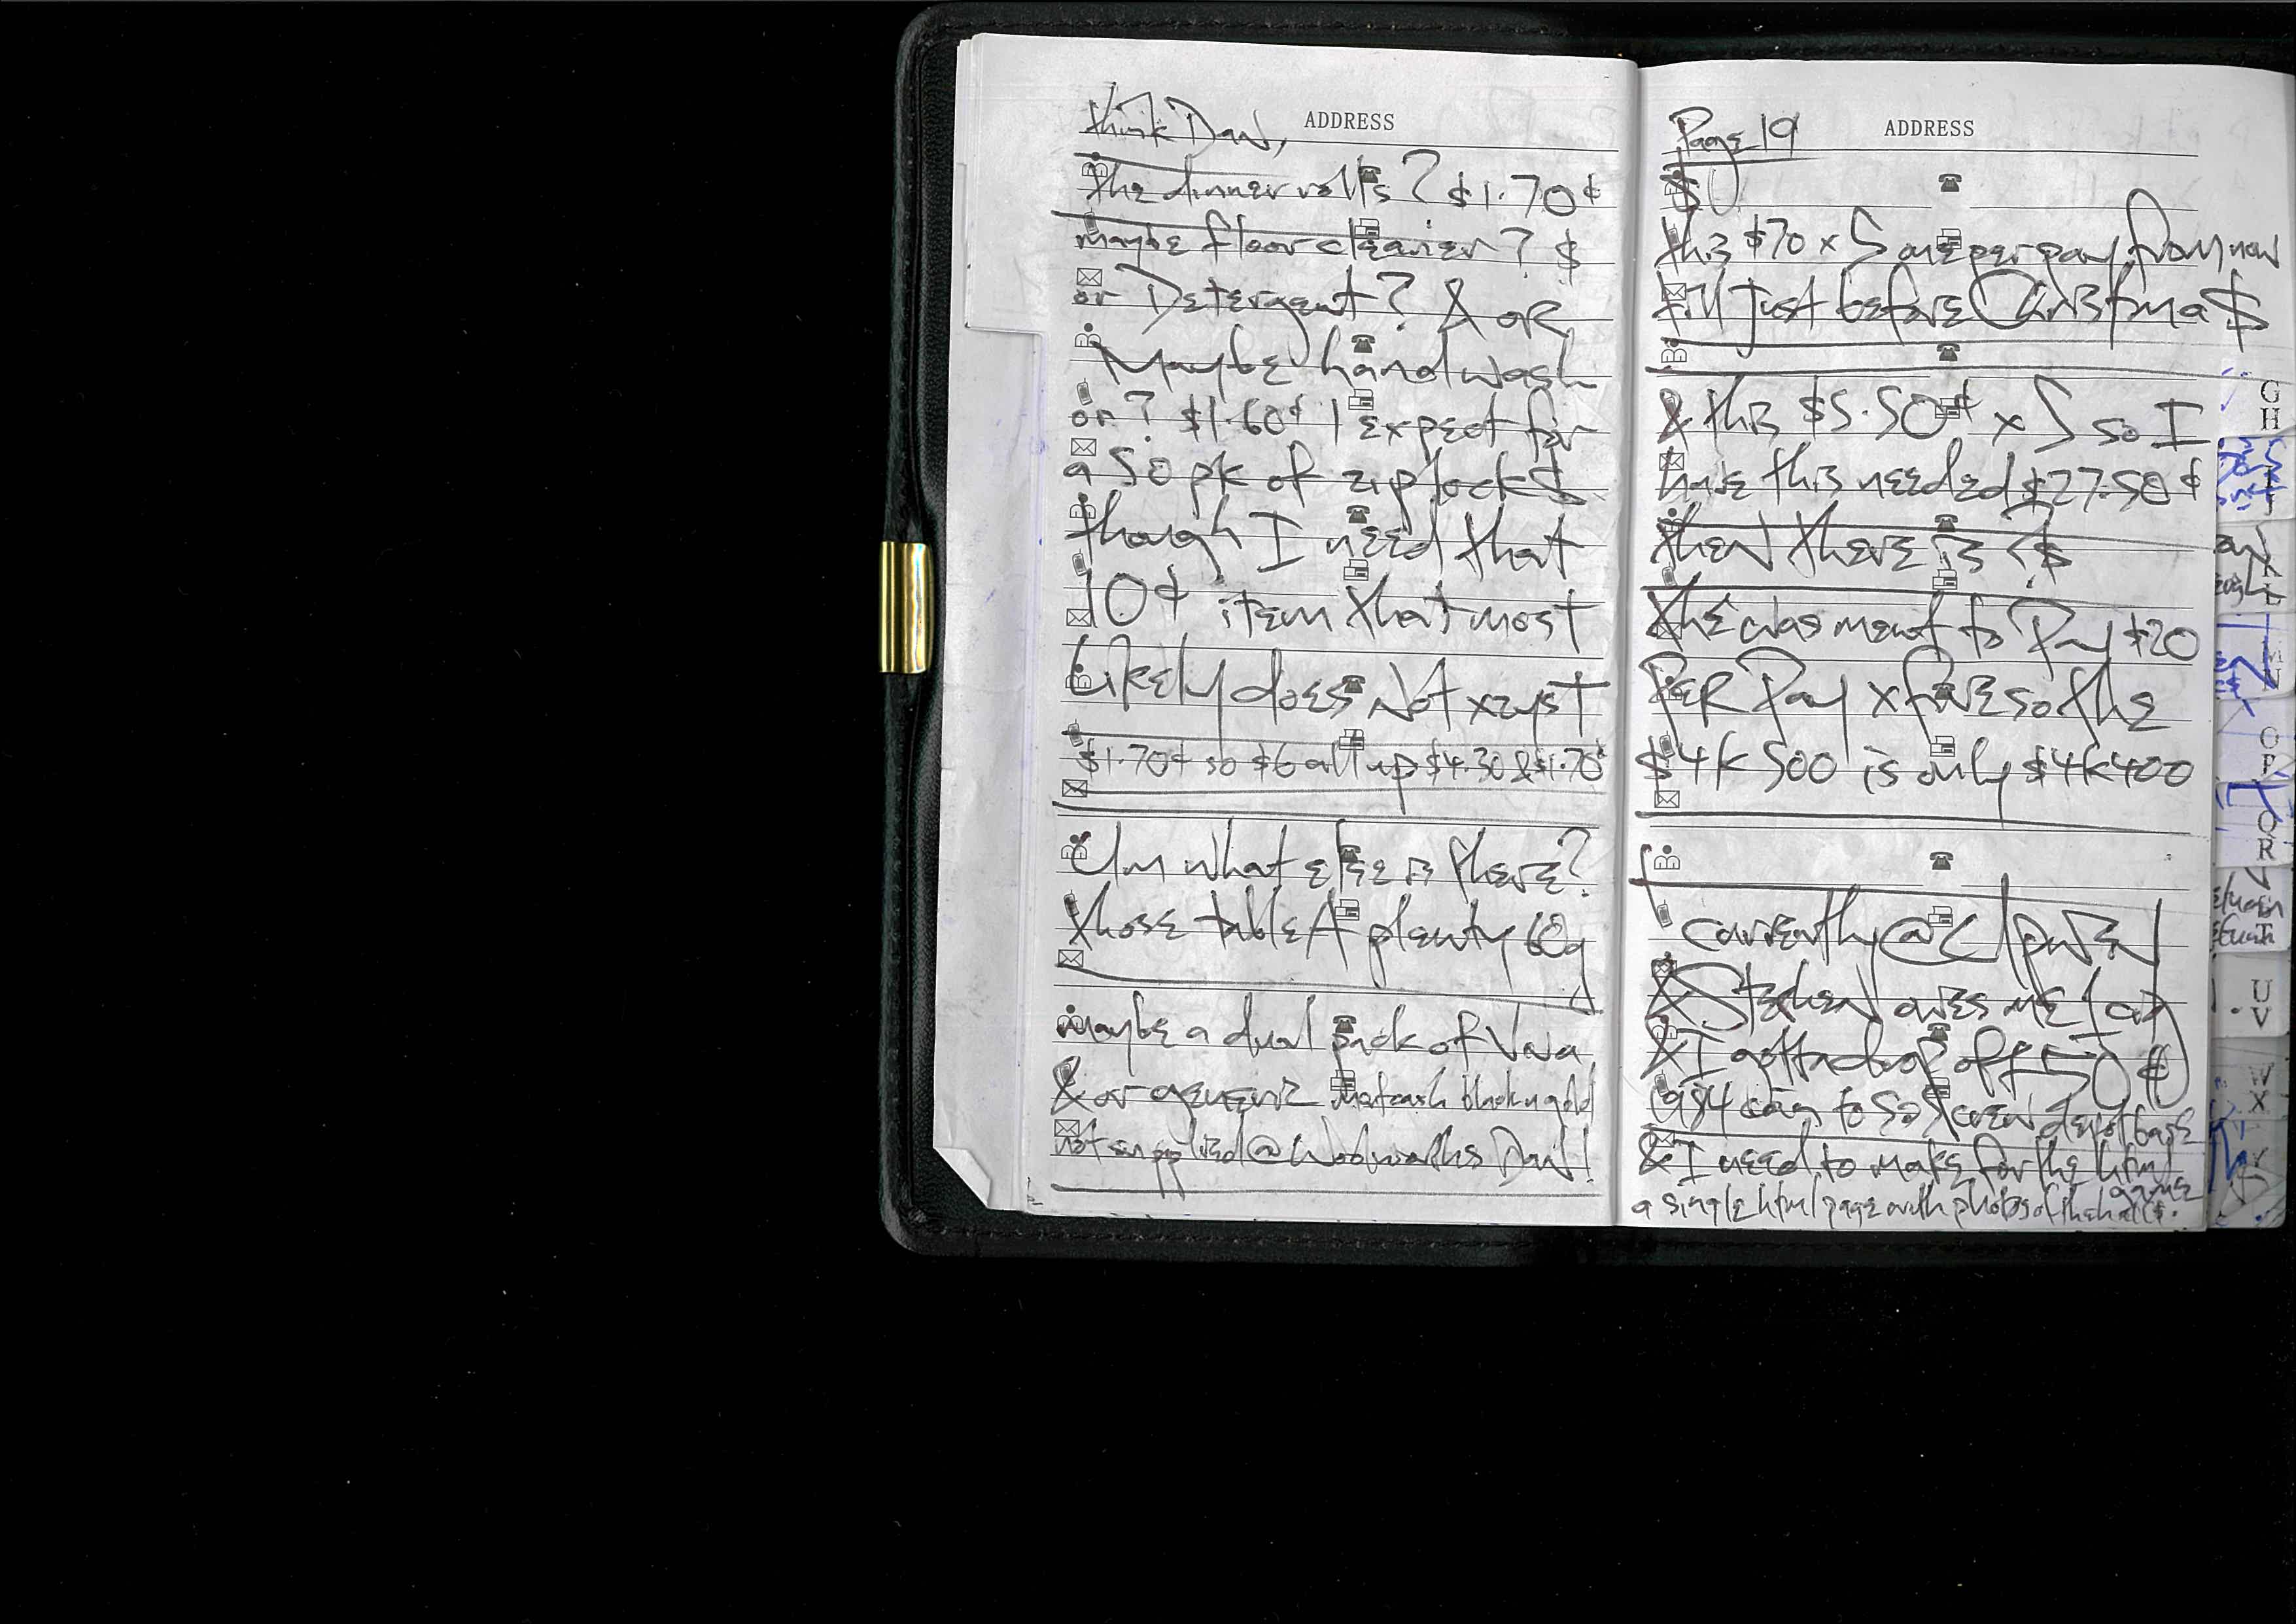 ADDRESS
think Dan,
the dinner rolls? $1.70¢
maybe floor cleaner? $
or Detergent? & OR
Maybe hand wash
or? $1.60¢ I expect for
a 50 pk of ziplock$
though I need that
10¢ item that most
Likely does Not xzyst
$1.70¢ so $6 all up $4.30 & $1.70¢
Um what else is there?
those table A plenty 60g
maybe a dual pack of
& or generic black n gold
not supplied @ Woolworths Dan!
ADDRESS
Page 19
$
this $70 x 5 one per pay from now
till just before Christma$
& this $5.50¢ x 5 so I
have this needed $27.50¢
then there is ?$
the was ment to Pay $20
PER Pay x five so the
$4K500 is only $4K400
currently @
& Stephen owes me
& I gotta drop off 50
to
& I need to make for the html
game
a single html page with photos of the
G
H
I
J
K
L
M
N
O
P
Q
R
T
U
V
W
X
Y